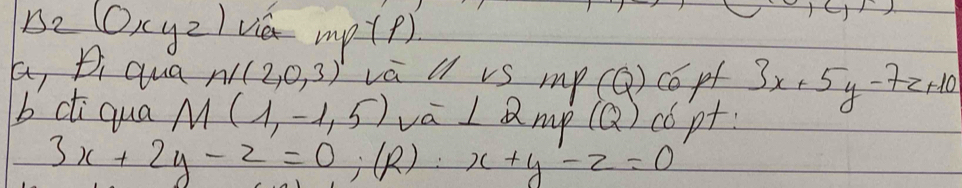 B2 (Oxyz) viết mp (P).
a, Đi qua M(2,0,3) và // vs mp (Q) có pt 3x+5y-7z+10
b đi qua M(1,-1,5) và ⊥ 2 mp (Q) có pt:
3x + 2y - z = 0 ; (R) : x + y - z = 0